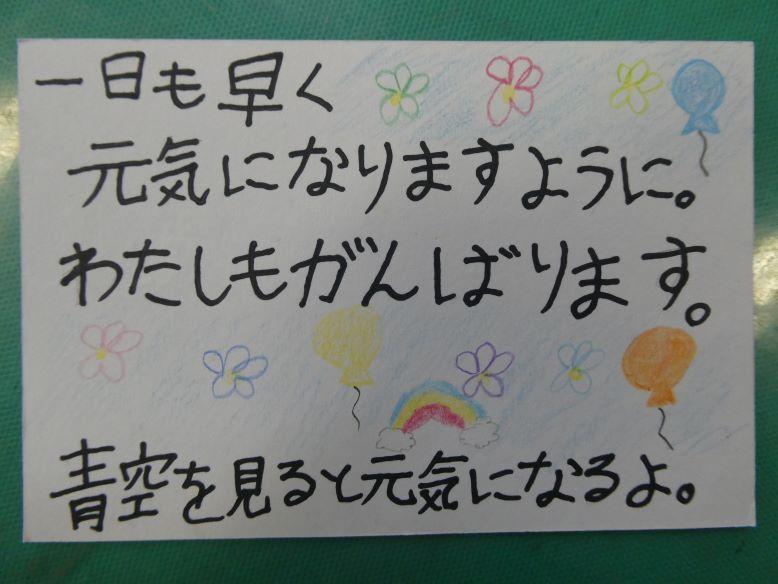 一日も早く
元気になりますように。
わたしもがんばります。
青空を見ると元気になるよ。